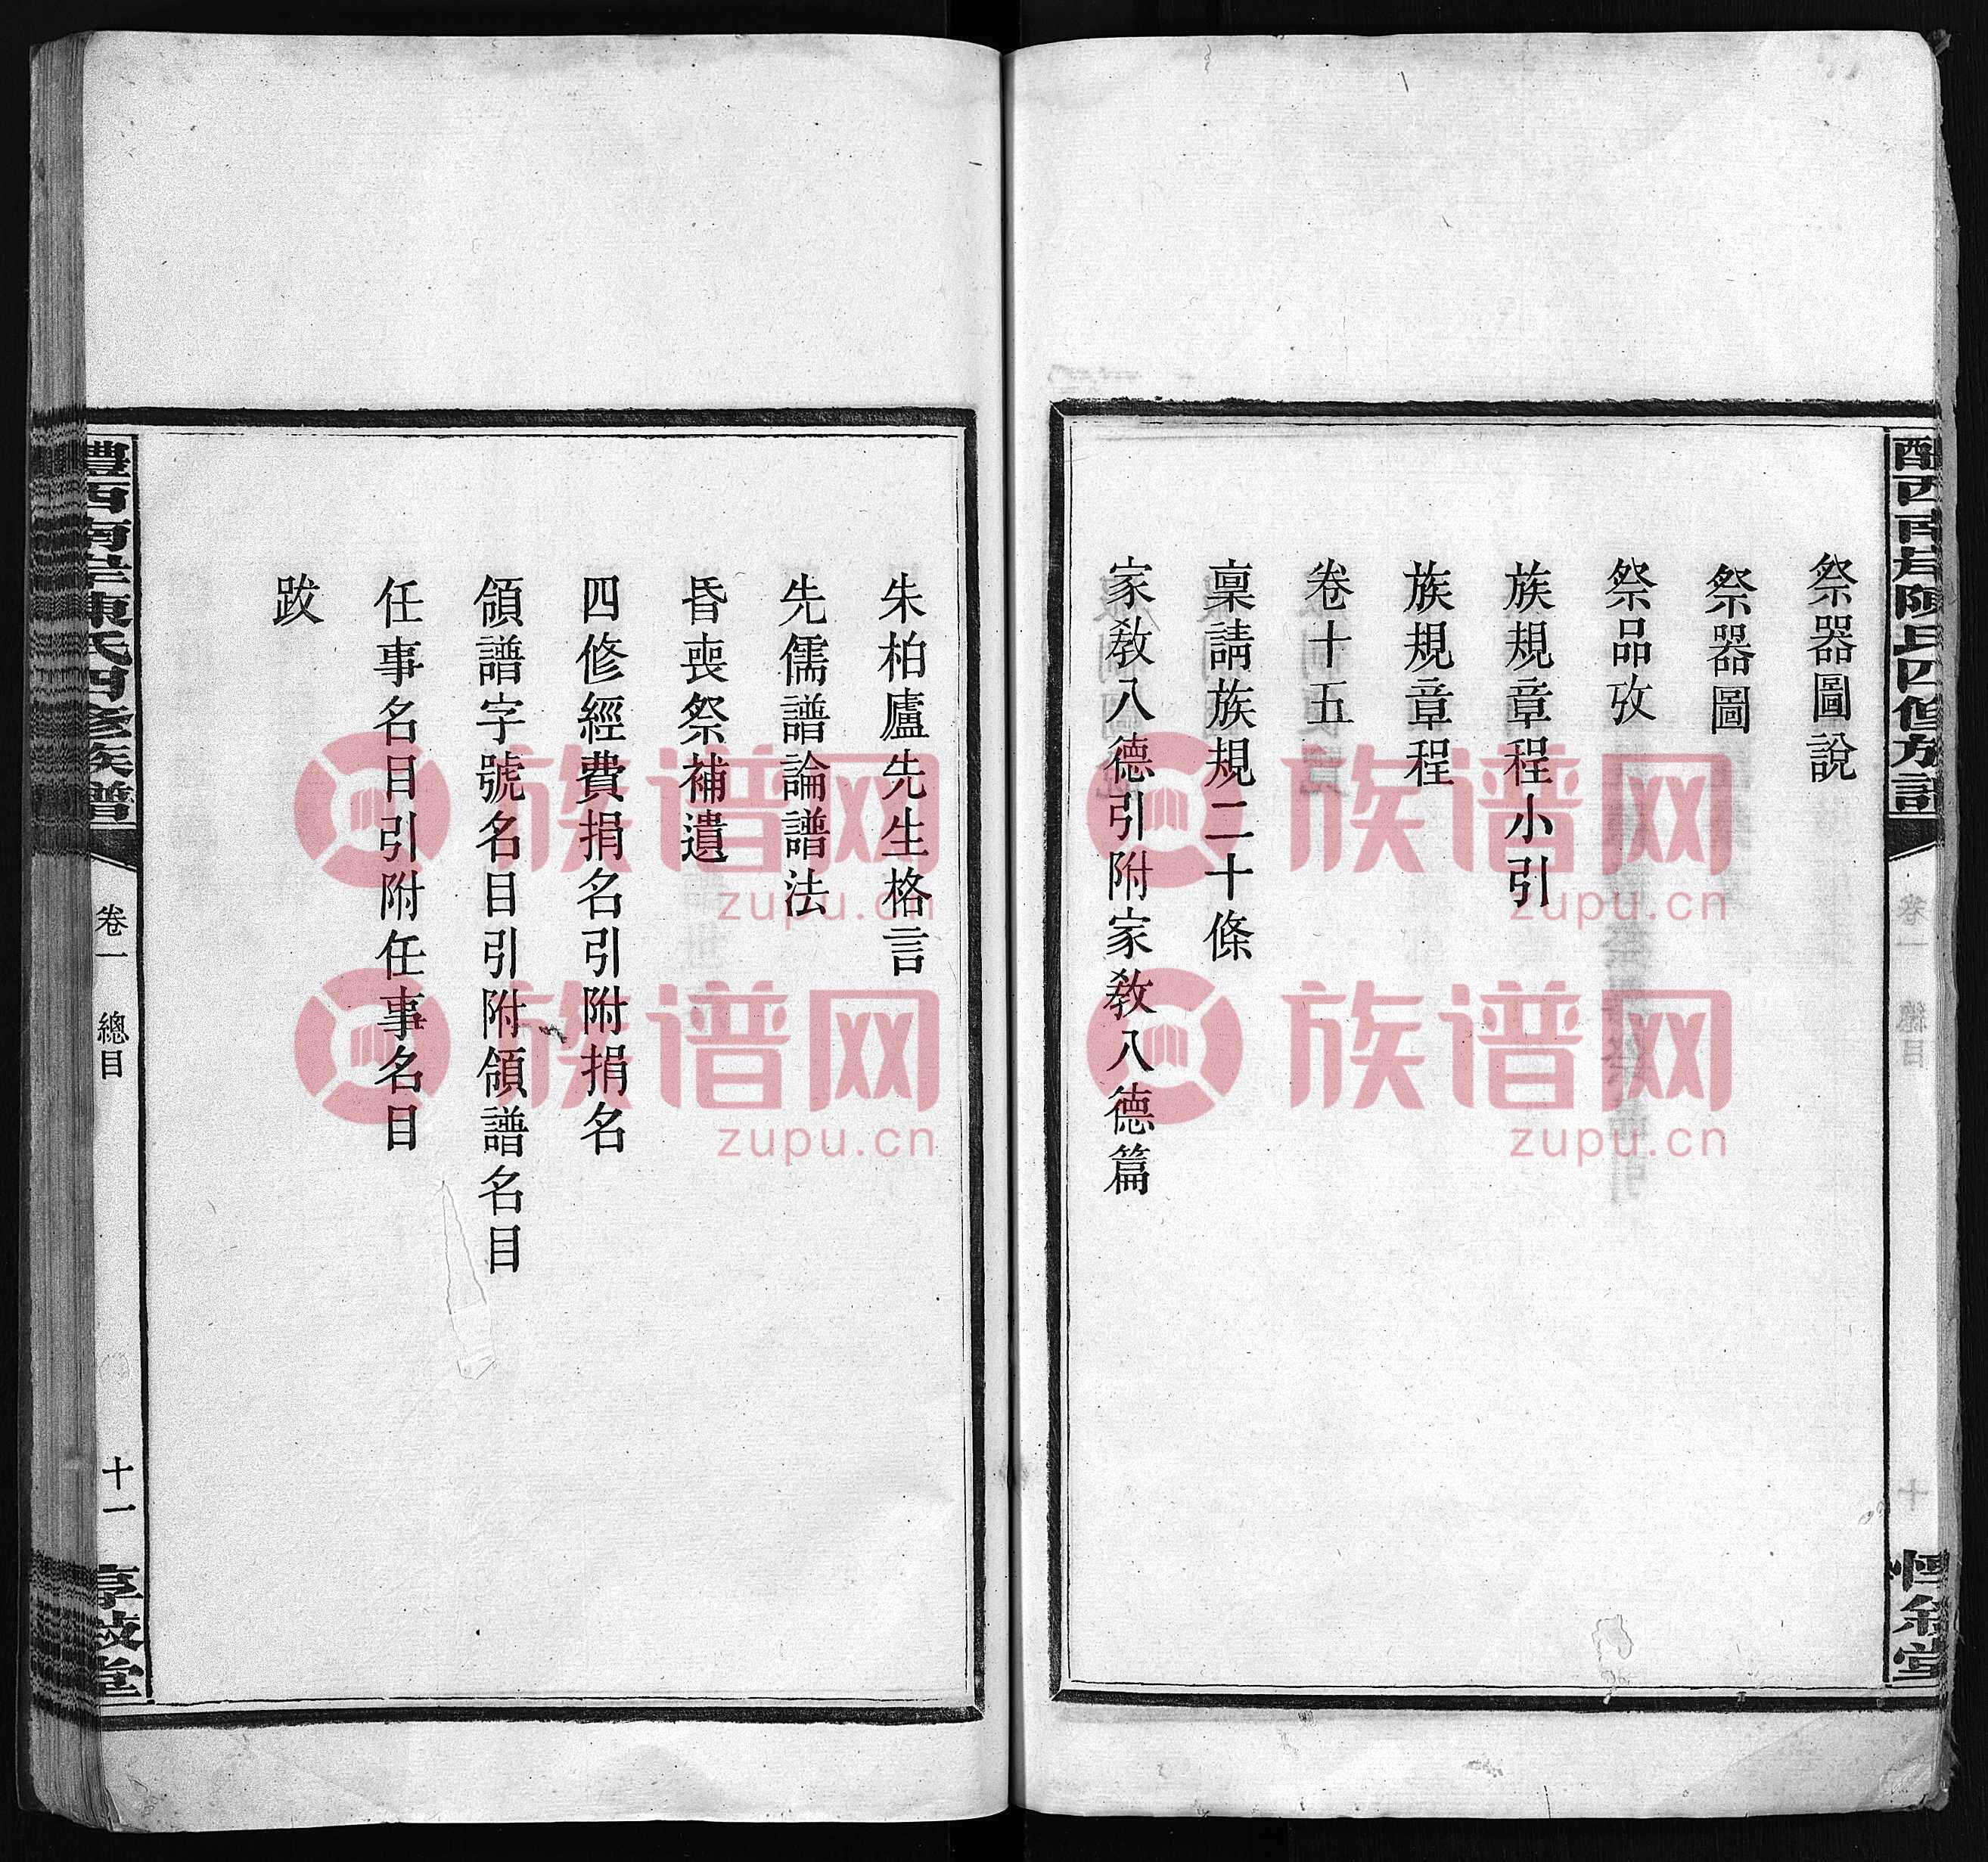 醴西南岸陳氏四修族譜
惇敘堂
祭器圖說
祭器圖
祭品攷
族規章程小引
族規章程
卷十五
稟請族規二十條
家敎八德引附家敎八德篇
朱柏廬先生格言
先儒譜論譜法
昏喪祭補遺
四修經費捐名引附捐名
領譜字號名目引附領譜名目
任事名目引附任事名目
跋
醴西南岸陳氏四修族譜
卷一
總目
十一
惇敘堂
族谱网
zupu.cn
族谱网
zupu.cn
族谱网
zupu.cn
族谱网
zupu.cn